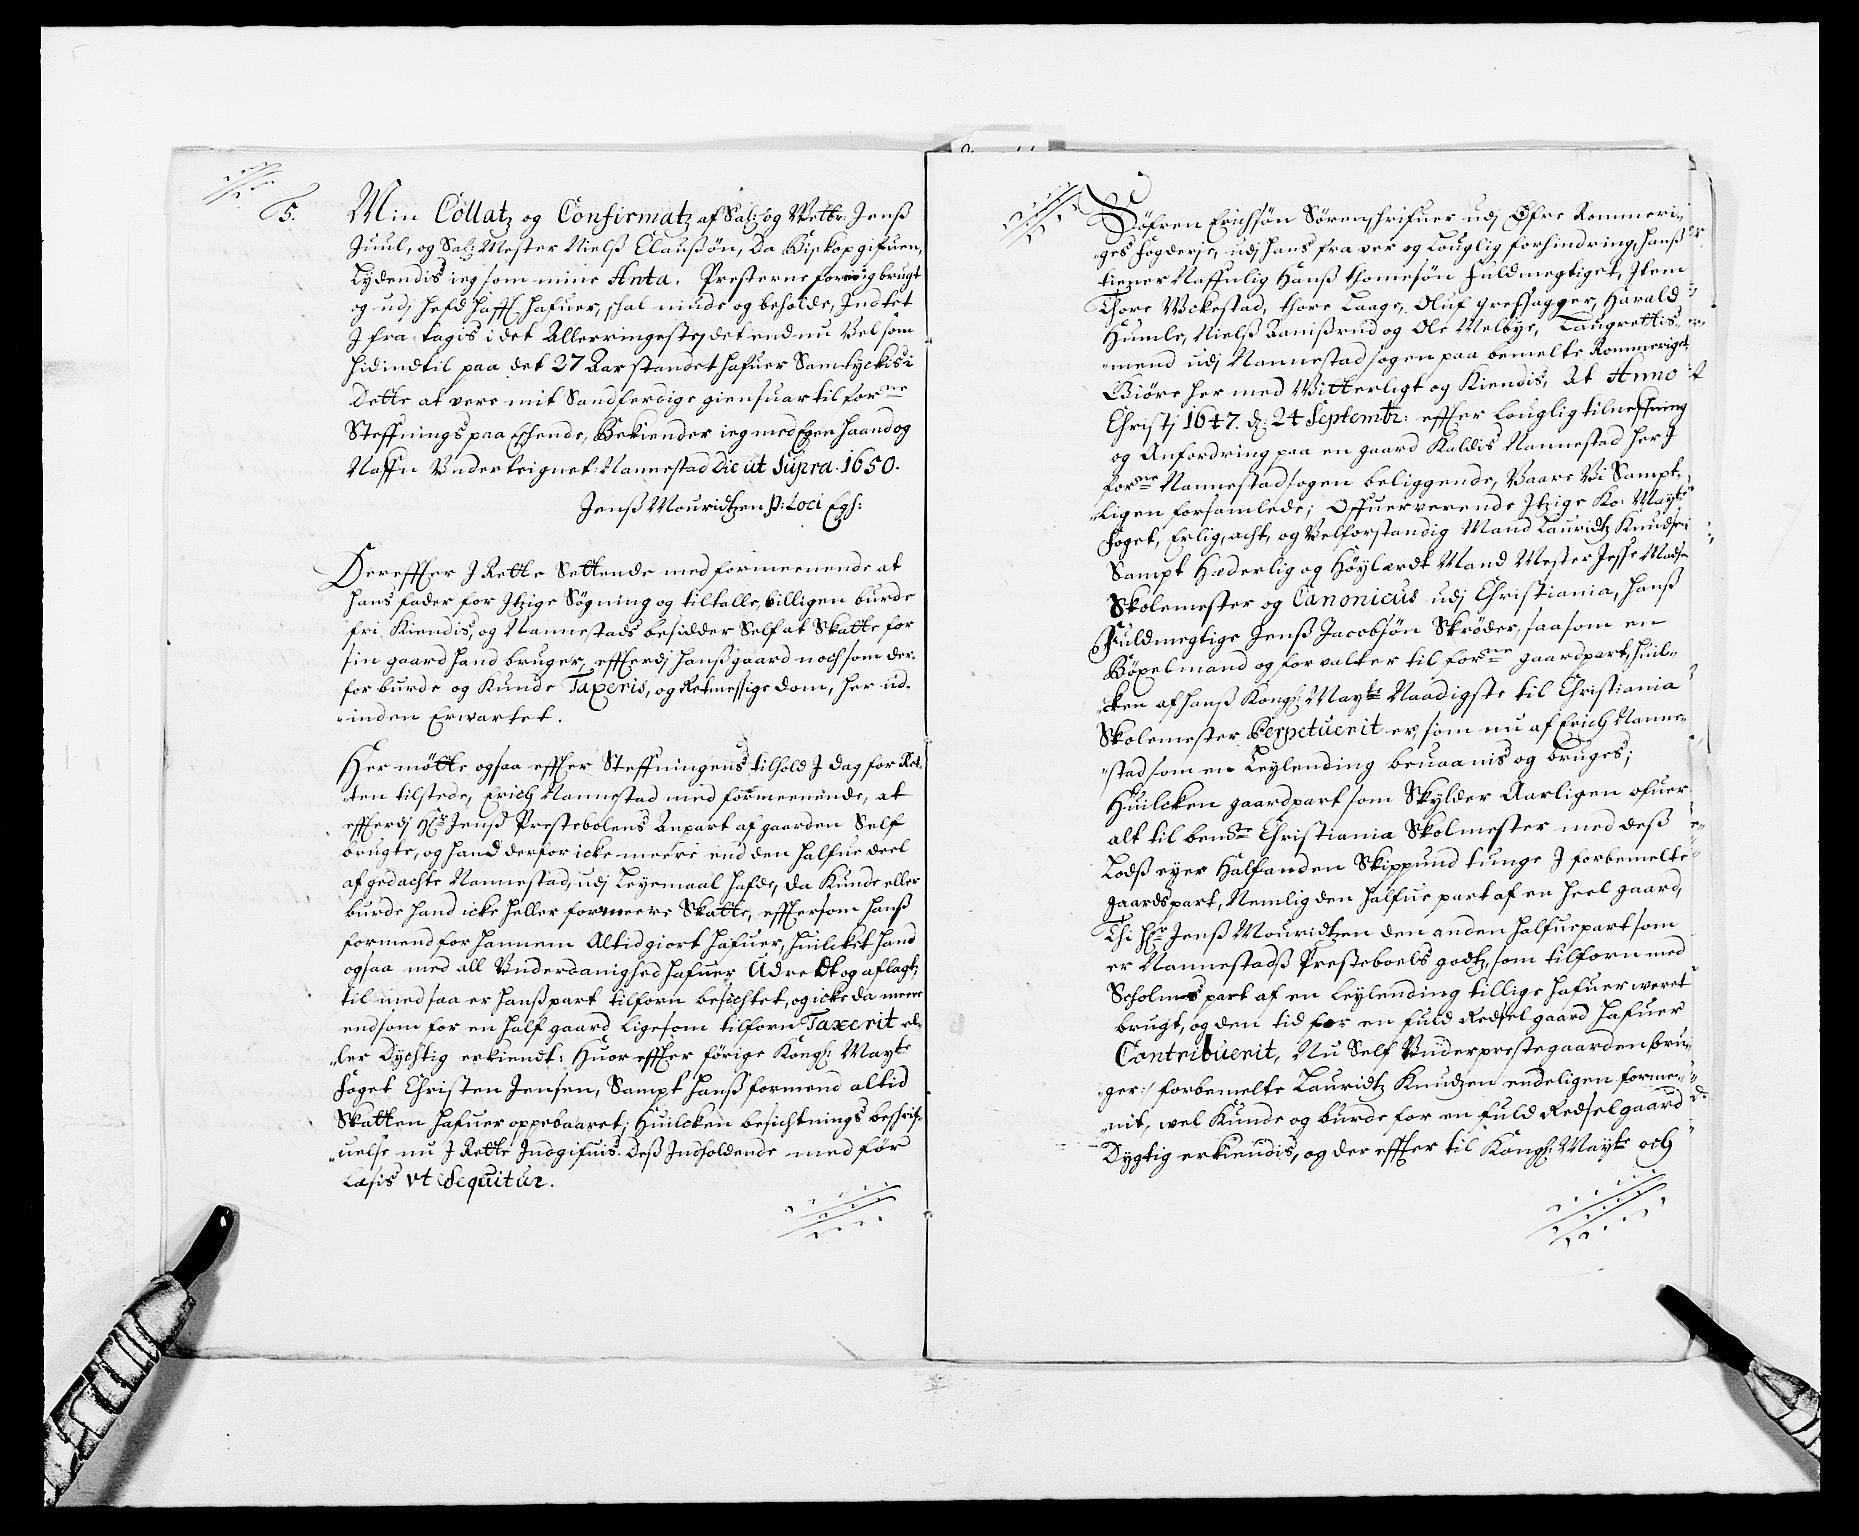 5. Min Collatz og Confirmatz af Sal: og Welb: Jenß
Juul, og Sal: Mester Nielß Claußøn, Da Biskop gifuen,
Lydendis ieg som mine Anta. Presterne for mig brugt
og udj hefd hafft hafuer, schal niude og beholde, Indtet
J fra tagis i det Allerringeste, det end nu Vel som
hid indtil paa det 27 Aar standet hafuer Samtyckis i
Dette at vere mit Sandferdige giensuar til forne
Steffnings paa Eschende, Bekiender ieg med Egen haand og
Naffn Vnderteignet: Nannestad Die ut Supra. 1650.
Jenß Mouridtzen P: Loci Egh:
Derefftter J Rette Settende med formeenende at
hans fader for Itzige Søgning og tiltalle, billigen burde
fri Kiendis, og Nannestads besidder Self at Skatte for
sin gaard hand bruger, effterdj hanß gaard noch som der-
for burde og Kunde Taxeris, og Retmessige dom, her ud-
inden Erwartet.
Her møtte ogsaa effter Steffningens tilhold J dag for Ret-
ten tilstede, Erich Nannestad med formeenende, at
effterdj Hr Jenß Prestebolens Anpart af gaarden Self
brugte, og hand derfor icke meere end den halfue deel
af gedachte Nannestad, udj Leyemaal hafde, da Kunde eller
burde hand icke heller for meere Skatte, efftersom hanß
formend for hannem Altid giort hafuer, huilcket hand
ogsaa med all Vnderdanighed hafuer Udredt og aflagt,
til med saa er hanß part tilforn besichtet, og icke da meere
end som for en half gaard ligesom tilforn Taxerit el-
ler Dychtig erkiendt: Huor effter førige Kongl: Maytz
foget Christen Jensen, Sampt hanß formend altid
Skatten hafuer oppebaaret; Huilcken besichtnings beschrif-
uelse nu J Rette Indgifuis. Deß Indholdende med for
Læsis vt Sequitur.
Søfren Erichsøn Sørenschrifuer udj Øfre Rommeri-
ges fogderje, udj hans fra ver og Louglig forhindring, hanß
tiener Naffnlig Hanß thomesøn fuldmegtiget, Item
Thore Vckestad, thore Laage, Oluf greffsagger, Harald
Humle, Nielß Ranißrud og Ole Melbye, Laugrettis-
mend udj Nannestad sogen paa bemelte Rommeriget,
Giøre her med Vitterligt og Kiendis, At Anno
Christj 1647. d: 24 Septembr: effter louglig tilneffning
og Anfordring paa en gaard Kaldis Nannestad her J
forne Nannestad sogen beliggende, Vaare Vi Sampt-
ligen forsamlede; Ofuerverende Itzige Ko: Maytz
foget, Erlig, acht, og Velforstandig Mand Lauridtz Knudsen
Sampt Hæderlig og Høylærdt Mand Mester Jesse Madsen
Skolemester og Canonicus udj Christiania, hanß
fuldmegtige Jenß Jacobsøn Skrøder, saasom en
Bøxelmand og forvalter til forne gaardpart, huil-
cken af hanß Kongl: Maytz Naadigste til Christiania
Skolemester Perpetuerit er, som nu af Erich Nanne-
stad som en Leylending beuaanis og bruges;
Huilcken gaardpart som Skylder Aarligen ofuer
alt til bemte Christiania Skolmester med deß
Lodß eyer Halfanden Skippund tunge J forbemelte
gaardspart, Nemlig den halfue part af en heel gaard,
Thi Hr Jenß Mouridtzen den anden halfuepart som
er Nannestadß Presteboels godtz, som tilforn med
Scholens part af en Leylending tillige hafuer weret
brugt, og den tid for en fuld Redsel gaard hafuer
Contribuerit, Nu Self Vnder prestegaarden bru-
ger:/ forbemelte Lauridtz Knudzen endeligen forme-
nit, wel Kunde og burde for en fuld Redsel gaard
Dygtig erkiendis, og der effter til Kongl: Maytz och